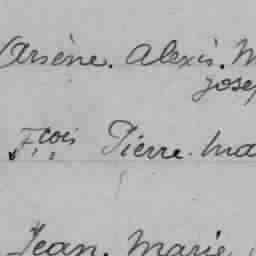 Arsène. Alexis. M
Josep
Fçois Pierre. Ma
Jean. Marie